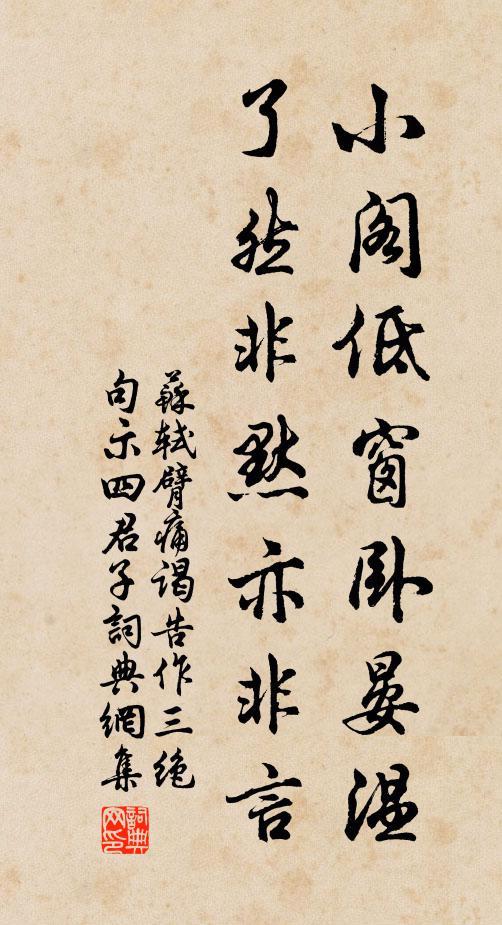 小阁低窗卧晏温
了然非默亦非言
蘇軾臂痛謁告作三绝
句示四君子詞典網集
詞典网印